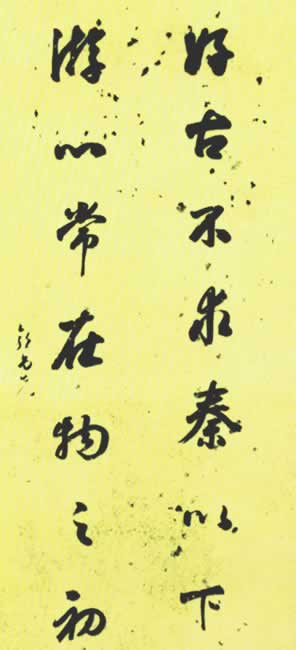 好古不求秦以下
游心常在物之初